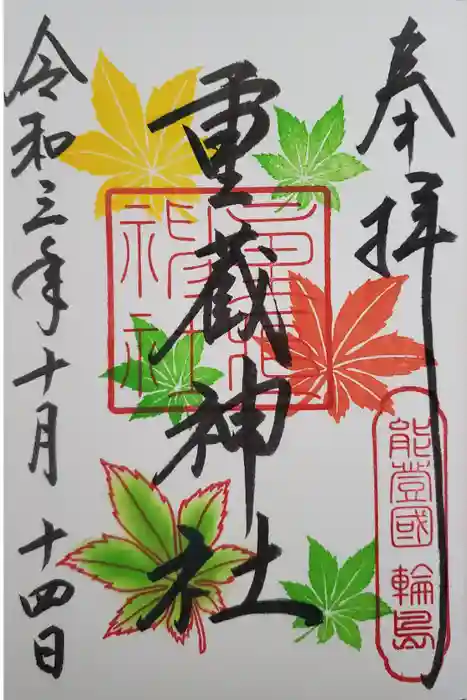 奉拝
能登國 輪島
重蔵神社
重蔵神社
令和三年十月十四日